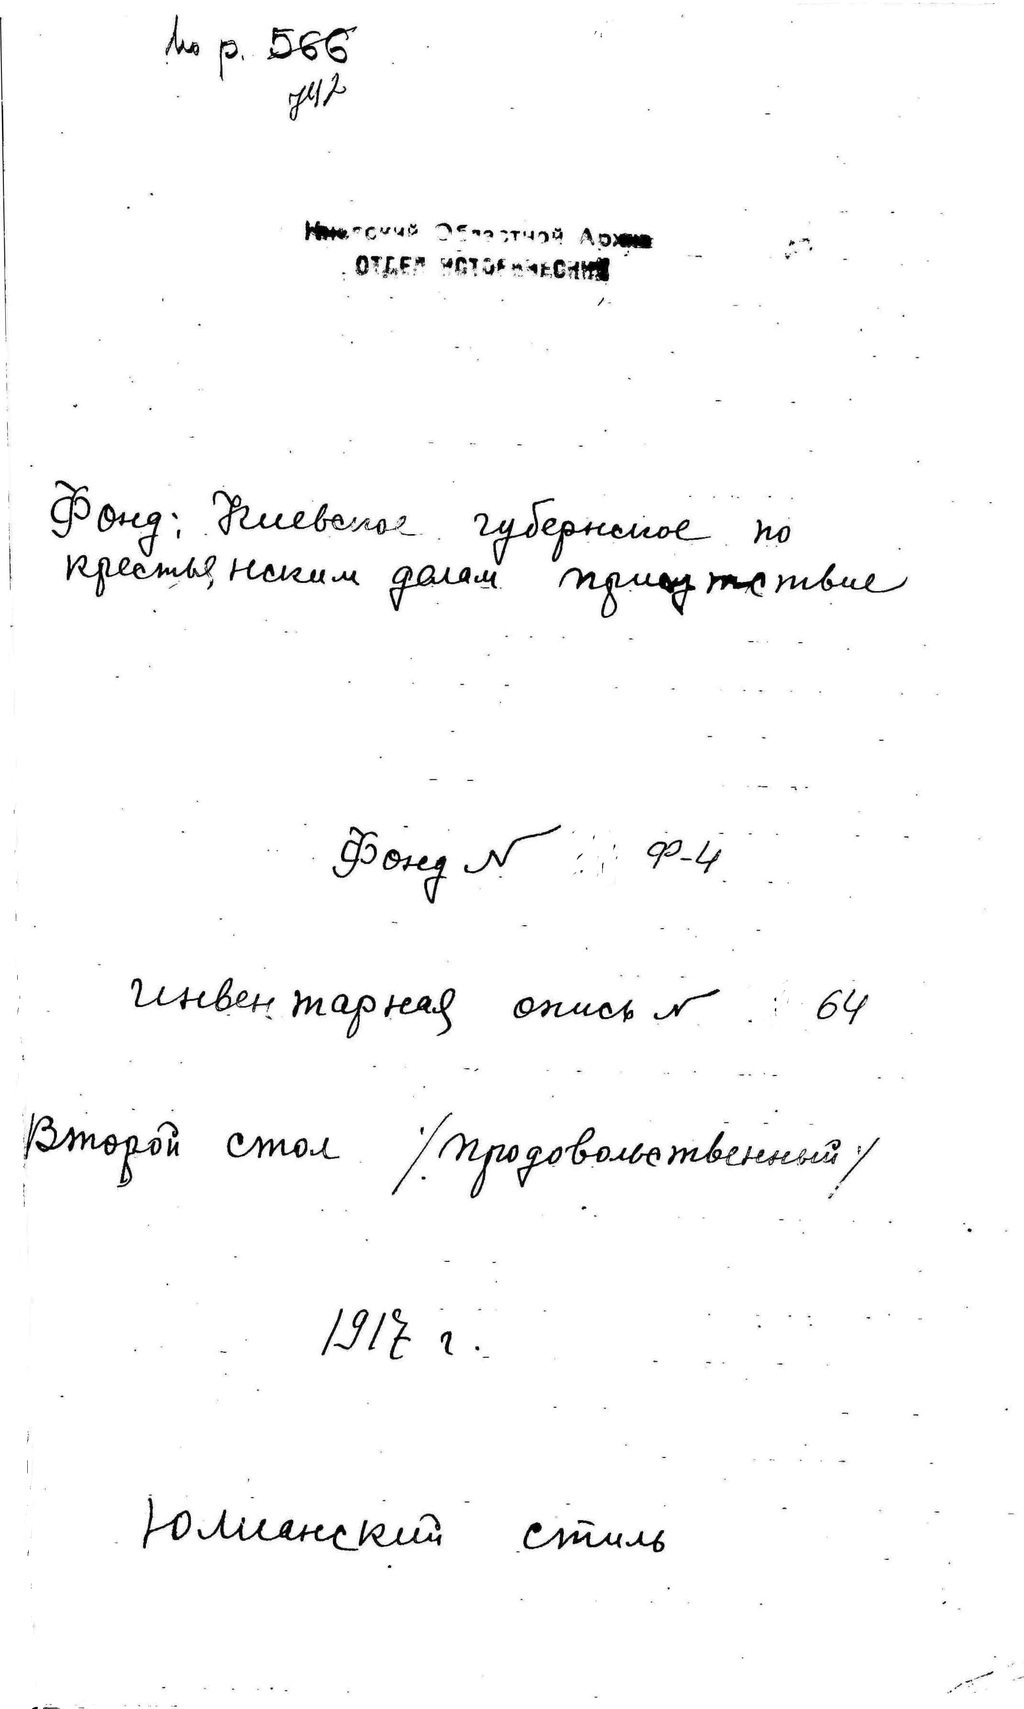 по р. 566
742
Киевский Областной Архив
ОТДЕЛ ИСТОРИЧЕСКИЙ
Фонд: Киевское губернское по
крестьянским делам присутствие
Фонд N Ф-4
Инвентарная опись N 64
Второй стол /продовольственный/
1917 г.
Юлианский стиль